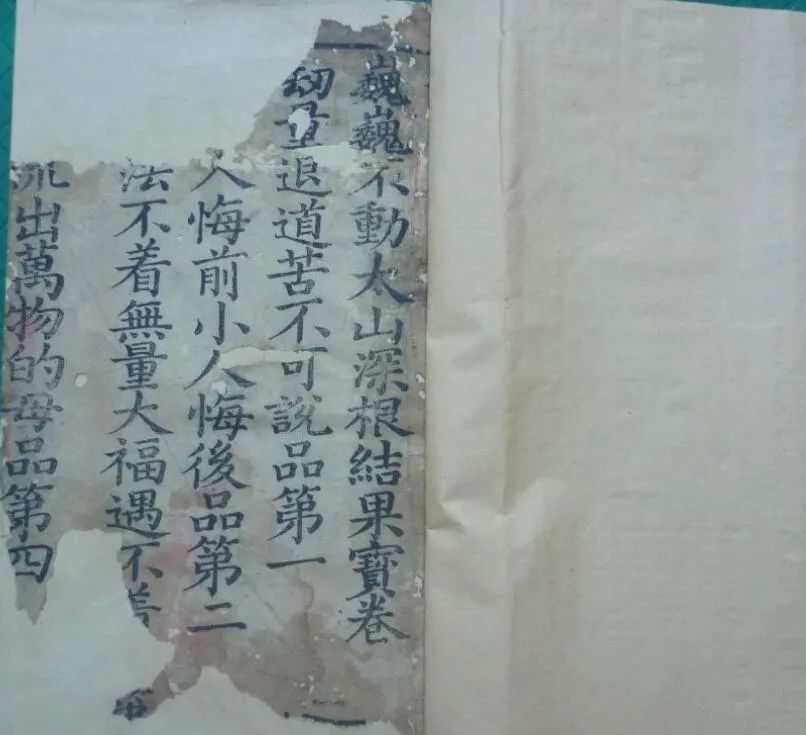 巍巍不動太山深根結果寶卷
刧量退道苦不可說品第一
人悔前小人悔後品第二
法不着無量大福遇不
流出萬物的母品第四